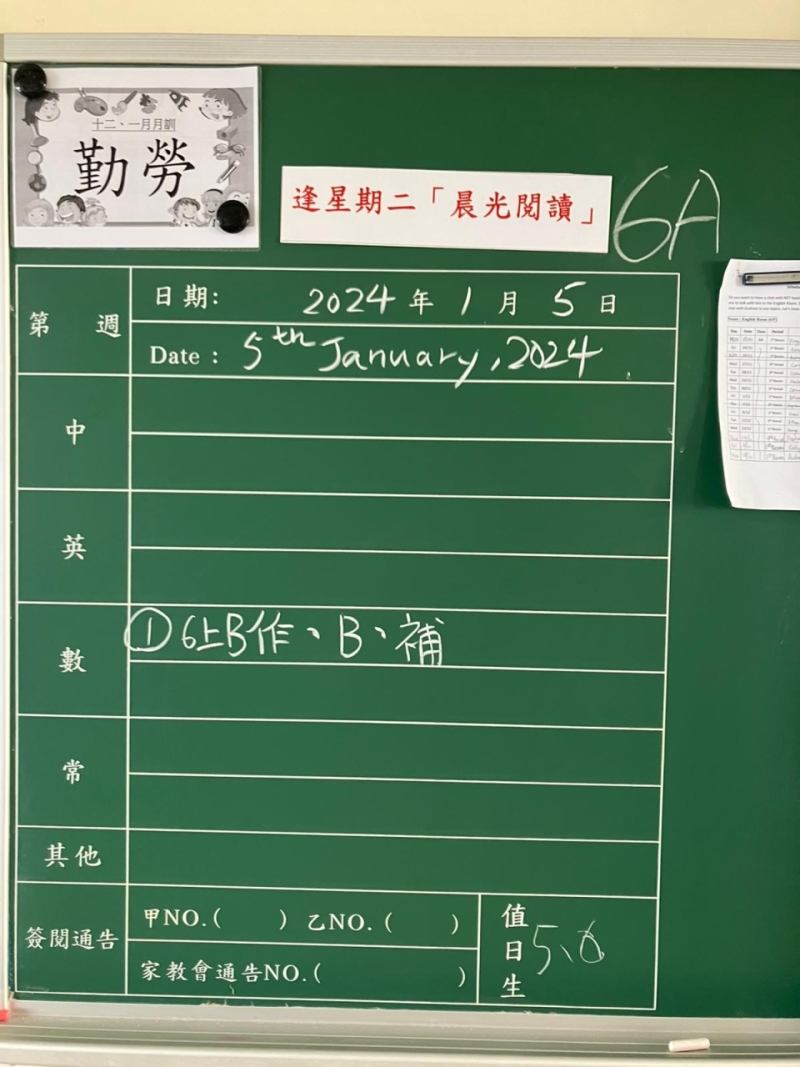 十二、一月月訓
勤勞
逢星期二「晨光閱讀」
6A
第 週
日期: 2024年1月5日
Date: 5th January, 2024
中
英
數
①6上B作、B、補
常
其他
簽閱通告
甲NO.( ) 乙NO.( )
家教會通告NO.( )
值日生
5、6